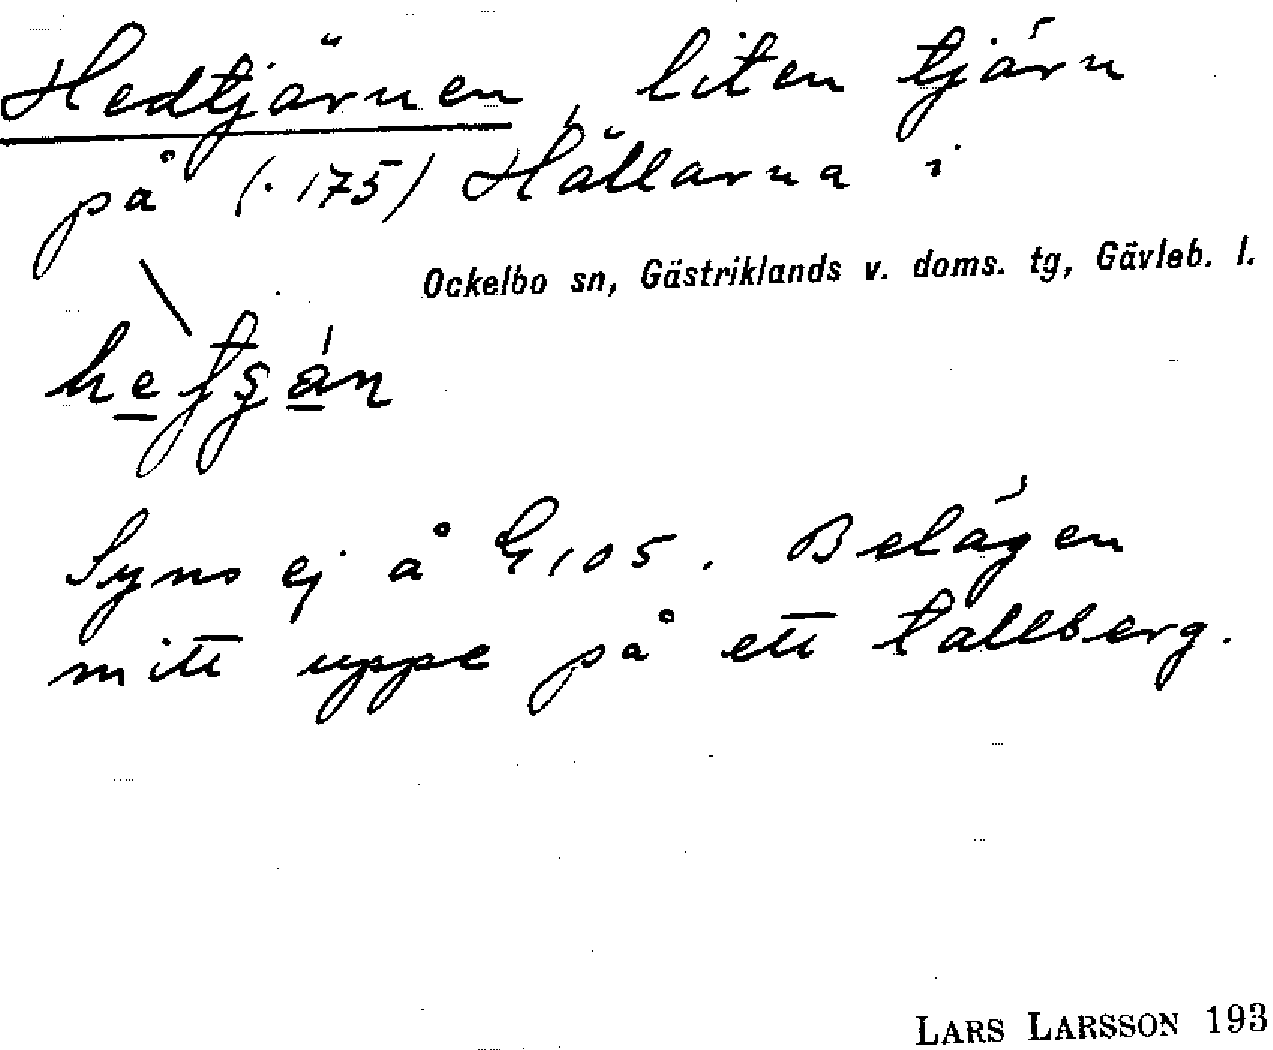 Hedtjärnen, liten tjärn
på (·175) Hällarna i
Ockelbo sn, Gästriklands v. doms. tg, Gävleb. l.
Syns ej å G105. Belägen
mitt uppe på ett tallberg.
LARS LARSSON 193